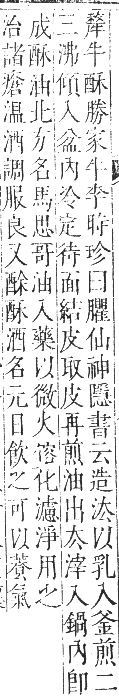 犛牛酥勝家牛李時珍曰臞仙神隱書云造法以乳入釜煎二
三沸傾入盆內冷定待面結皮取皮再煎油出去滓入鍋內即
成酥油北方名馬思哥油入藥以微火溶化濾淨用之
治諸瘡溫酒調服良又酴酥酒名元日飲之可以養氣